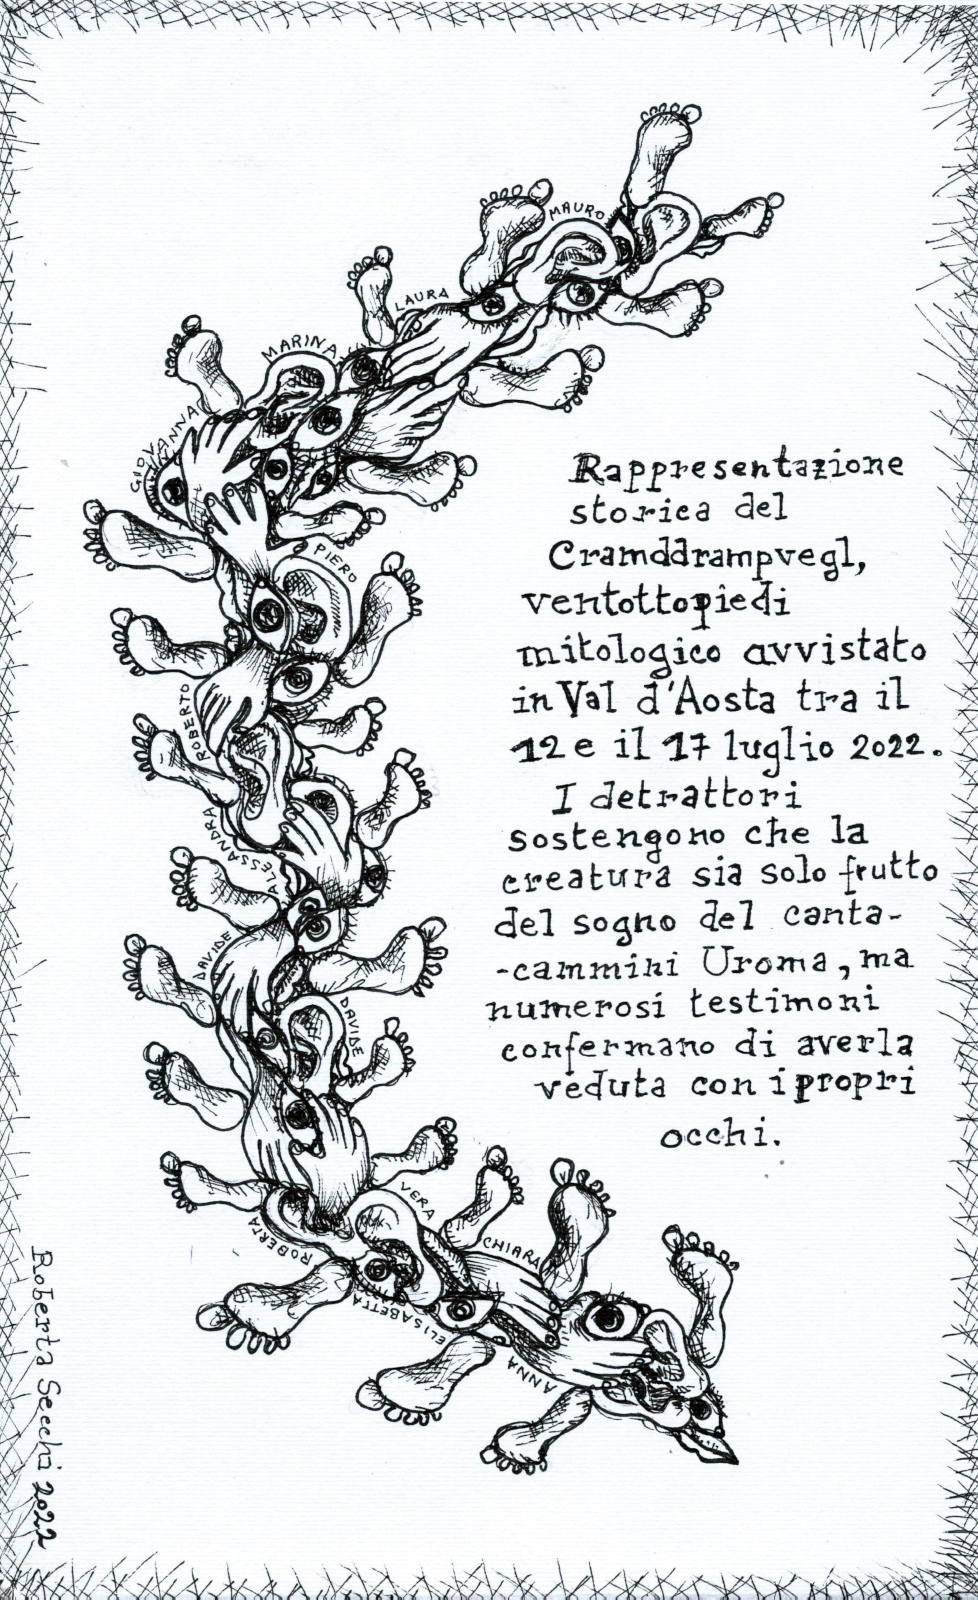 MAURO
LAURA
MARINA
GIOVANNA
PIERO
ROBERTO
ALESSANDRA
DAVIDE
DAVIDE
VERA
ROBERTA
CHIARA
ELISABETTA
ANNA
Rappresentazione
storica del
Cramddrampvegl,
ventottopiedi
mitologico avvistato
in Val d'Aosta tra il
12 e il 17 luglio 2022.
I detrattori
sostengono che la
creatura sia solo frutto
del sogno del canta-
-cammini Uroma, ma
numerosi testimoni
confermano di averla
veduta con i propri
occhi.
Roberta Secchi 2022